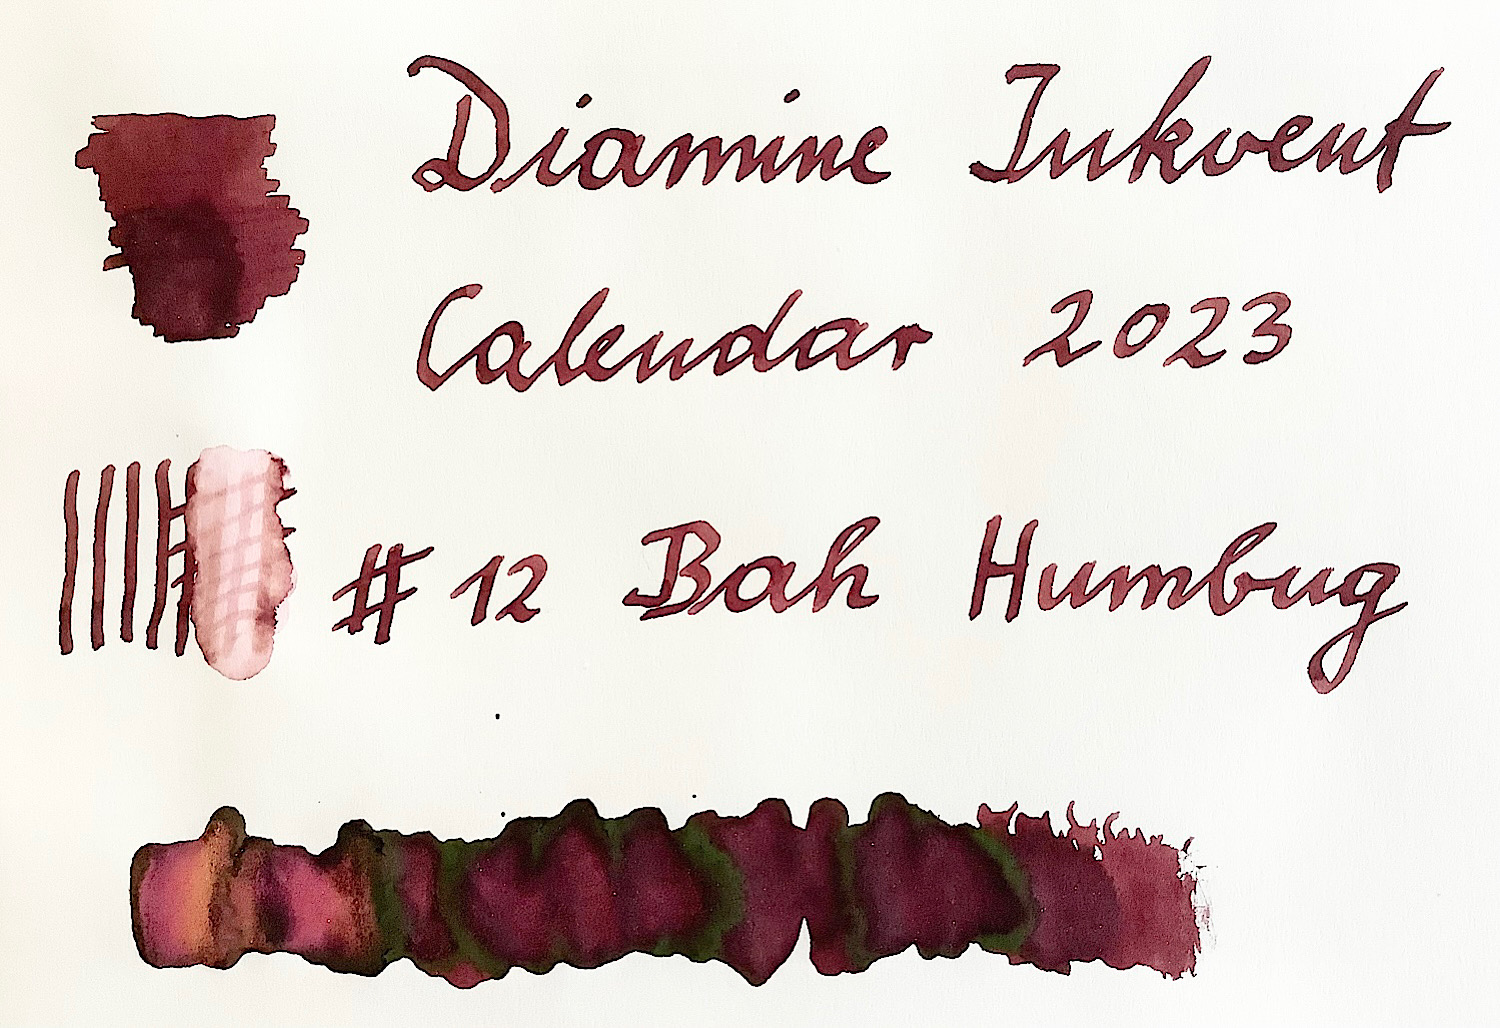 Diamine Inkvent
Calendar 2023
# 12 Bah Humbug